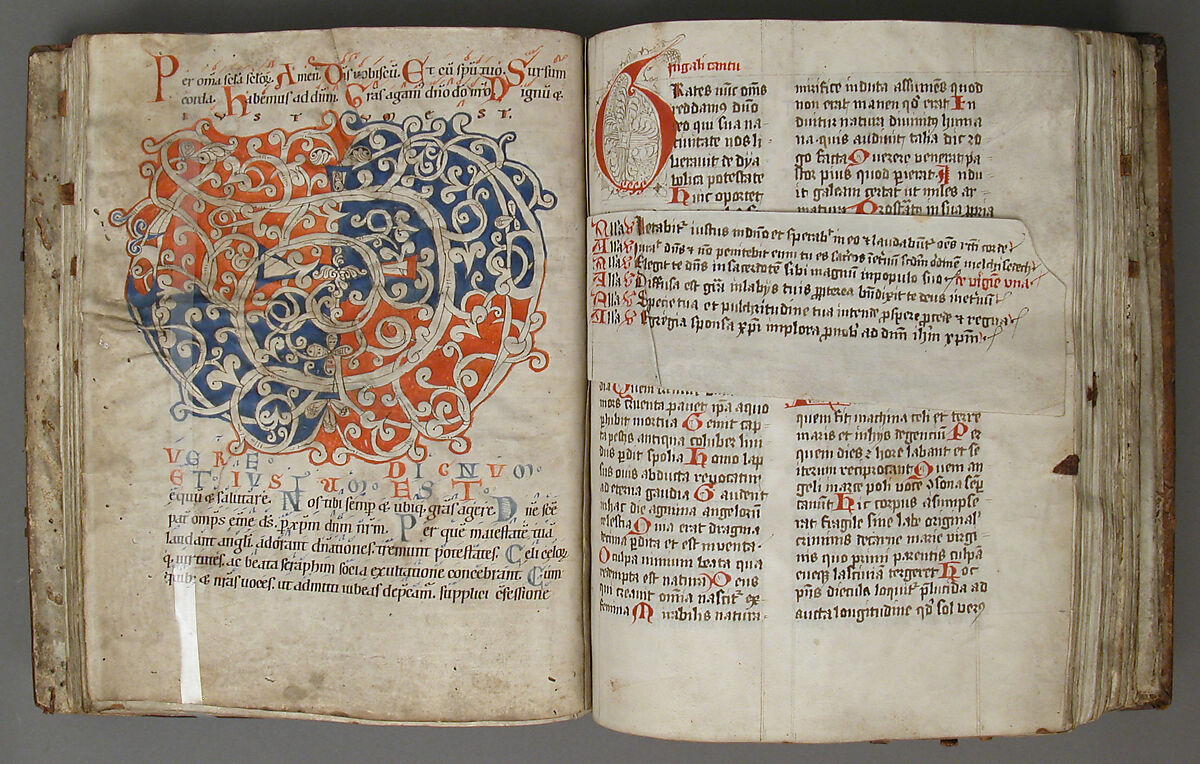 Per om̅a sc̅la sc̅lor. Amen. Dn̅s vobiscu̅. Et cu̅ sp̅u tuo. Sursum
corda. habemus ad dn̅m. Gras agam̅ dn̅o do n̅ro. Dignu̅ &
IVSTVM EST.
VERE DIGNVM
ET IVSTVM EST.
equu̅ & salutare. Nos tibi semp̅ & ubiq; gras agere. Dn̅e sc̅e
pat̅ omps et̅ne ds̅. p̅ xp̅m dn̅m nr̅m. Per que̅ maiestate̅ tua̅
laudant angli. adorant dn̅ationes. tremunt potestates. Celi celor̅
q; uirtutes. ac beata seraphim socia exultatione concelebrant. Cum
quib; & n̅ras uoces. ut admitti iubeas dep̅cam̅. supplici c̅fessione
Grates nu̅c om̅s
reddamus dn̅o
deo qui sua na-
tiuitate nos li-
berauit de dya
bolica potestate
Huic oportet
mirifice induta assumens quod
non erat manens qd̅ erat In
duitur natura diuinitas huma
na quis audiuit talia dic ro
go facta Querere venerat pa-
stor pius quod p̅ierat Indu
it galeam certat ut miles ar-
matura Prostrat̅ in sua p̅pria
Alla V Letabit̅ iustus in dn̅o et sperab̅ in eo & laudabu̅t̅ om̅s r̅c̅i corde
Alla V Iurat dn̅s & no̅ penitebit eum tu es sac̅dos in et̅nu̅ s̅c̅d̅m ordine̅ melchisedech
Alla V Elegit te dn̅s in sacerdote̅ sibi magnu̅ in populo suo de v̅gi̅e una
Alla V Diffusa est gr̅a in labijs tuis p̅pterea b̅n̅dixit te deus in et̅nu̅
Alla V Specie tua et pulchritudine tua intende p̅spere p̅cede & regna
Alla V Egregia sponsa xp̅i implora p̅ nob̅ ad dn̅m ih̅m xp̅m
mors inuenta pauet ip̅a a quo
p̅hibit̅ mortua Gemit cap-
ta pestis antiqua coluber liui
dus p̅dit spolia Homo lap
sus ouis abducta reuocatur
ad eterna gaudia Gaudent
in hac die agmina angelorum
celestia Quia erat dragma
decima p̅dita et est inuenta
O culpa nimium beata qua
redempta est natura Deus
qui creauit om̅ia nascit̅ ex
femina Mirabilis natura
quem fit machina celi et terre
maris et in hijs degencium Per
quem dies & hore labant et se
iterum reciprocant Quem an
geli in arce poli voce c̅sona se̅p
canu̅t Hic corpus assumpse-
rat fragile sine labe original̅
criminis de carne marie virgi-
nis quo primi parentis culpa̅
eueq; lasciuia tergeret Hoc
p̅n̅s diecula loquit̅ p̅lucida ad
aucta longitudine qd̅ sol ver9